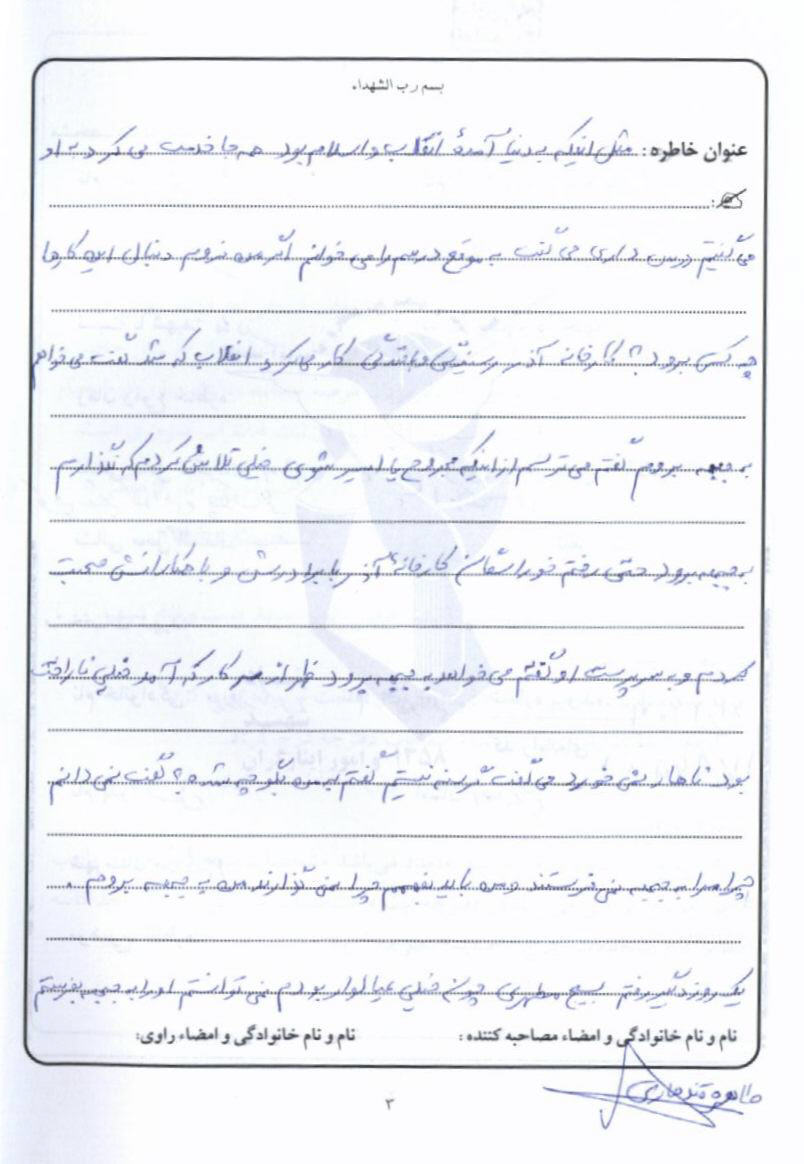 بسم رب الشهداء
عنوان خاطره: مثل اینکه به دنیا آمدهٔ انقلاب و اسلام بود همه جا خدمت می کرد به او
می گفتیم درس داری می گفت به موقع درسم را می خوانم اگر من نروم دنبال این کارها
چه کسی برود؟ کارخانه آذر ریسندگی و بافندگی کار می کرد انقلاب که شد گفت می خواهم
به جبهه بروم گفتم می ترسم از اینکه مجروح یا اسیر شوی خیلی تلاش کردم که نگذارم
به جبهه برود حتی رفتم خوراسگان کارخانه آذر با برادرش و با همکارانش صحبت
کردم و به سرپرست او گفتم می خواهد به جبهه برود ظهر از سر کار که آمد خیلی ناراحت
بود ناهار نمی خورد می گفت گرسنه نیستم گفتم به من بگو چه شده؟ گفت نمی دانم
چرا مرا به جبهه نمی فرستند و من باید بفهمم چرا نمی گذارند من به جبهه بروم.
یک روز دیگر رفتم بسیج مطهری چون خیلی عیالوار بودم نمی توانستم او را به جبهه بفرستم
نام و نام خانوادگی و امضاء مصاحبه کننده: نام و نام خانوادگی و امضاء راوی:
طاهره قندهاری
۳